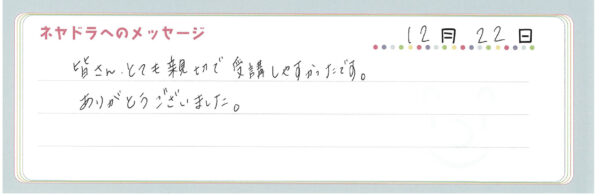 ネヤドラへのメッセージ 12月22日
皆さん、とても親切で受講しやすかったです。
ありがとうございました。